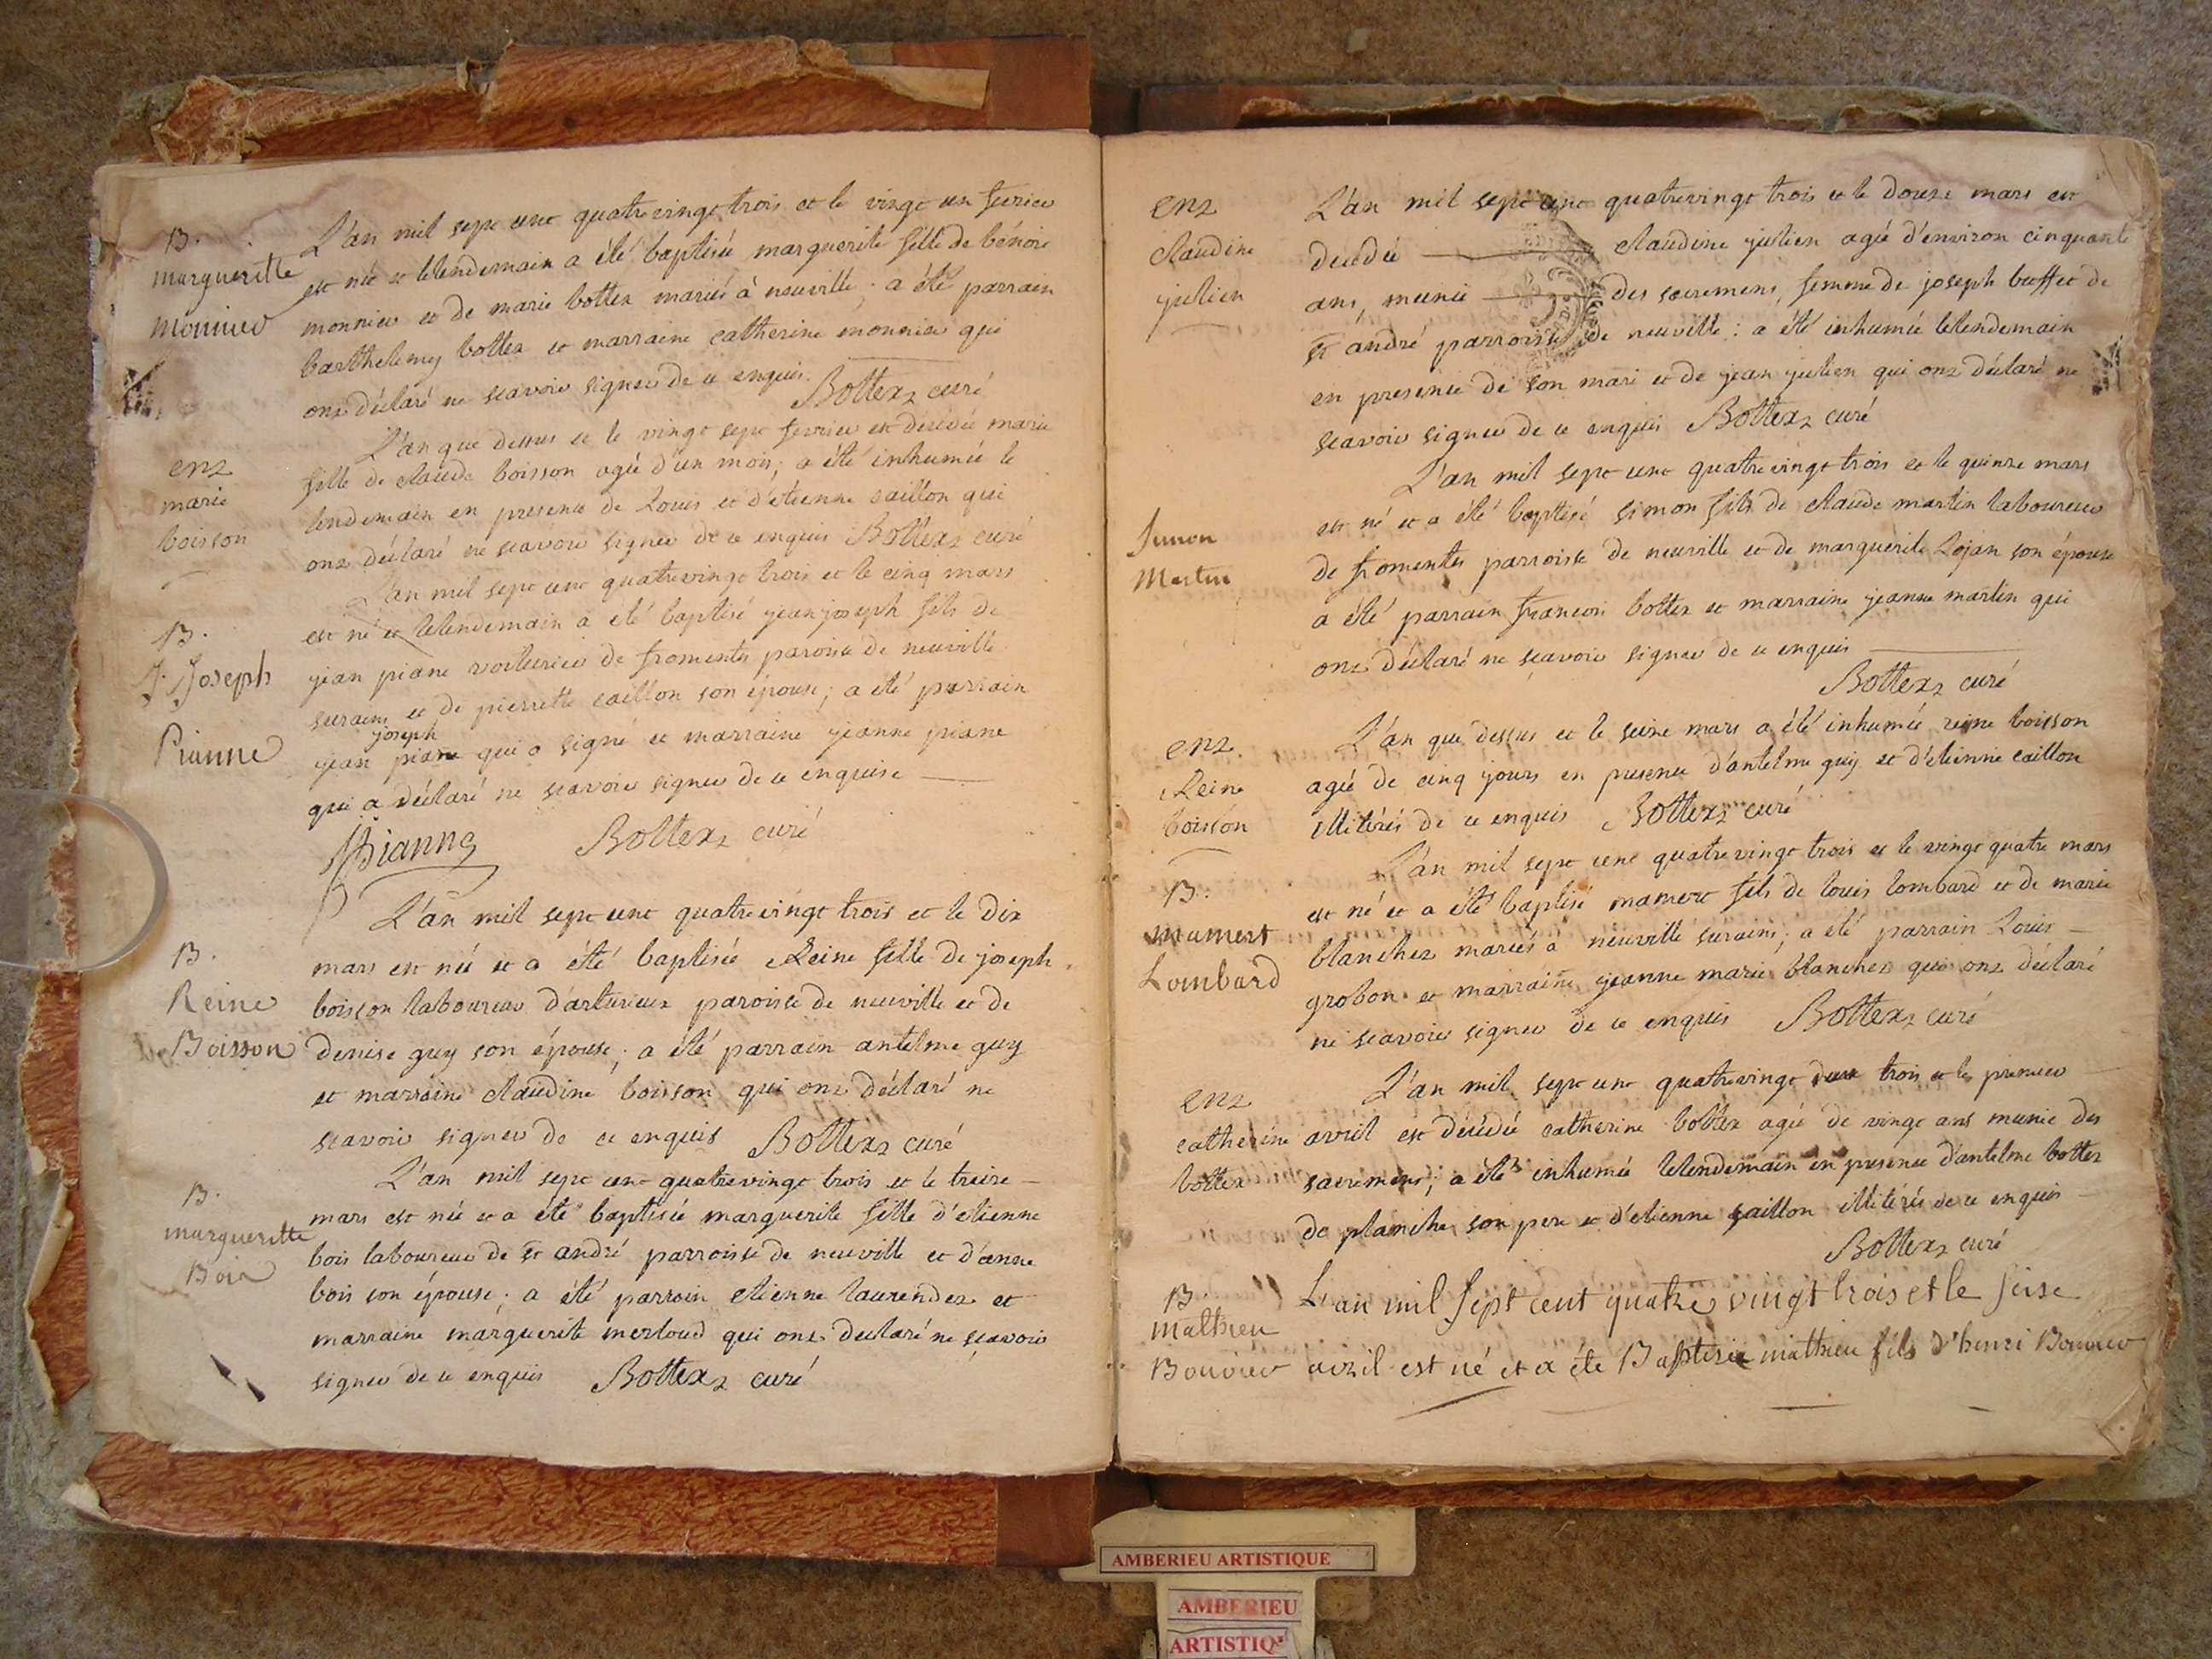 B.
marguerite
monnier
L'an mil sept cent quatrevingt trois et le vingt un fevrier
est née et lelendemain a été baptisée marguerite fille de bénoit
monnier et de marie bottex mariés à neuville ; a été parrain
barthelemy bottex et marraine catherine monnier qui
ont déclaré ne scavoir signer de ce enquis. Bottex curé
enz
marie
boisson
L'an que dessus et le vingt sept fevrier est décédée marie
fille de claude boisson agée d'un mois, a été inhumée le
lendemain en presence de Louis et d'etienne caillon qui
ont déclaré ne scavoir signer de ce enquis Bottex curé
B.
J. Joseph
Pianne
L'an mil sept cent quatrevingt trois et le cinq mars
est né et lelendemain a été baptisé jean joseph fils de
jean piane voiturier de fromentes paroisse de neuville
surains et de pierrette caillon son épouse ; a été parrain
joseph
jean piane qui a signé et marraine jeanne piane
qui a déclaré ne scavoir signer de ce enquise
Pianne Bottex curé
B.
Reine
Boisson
L'an mil sept cent quatrevingt trois et le dix
mars est née et a été baptisée Reine fille de joseph
boisson laboureur d'arturieux paroisse de neuville et de
denise guy son épouse ; a été parrain antelme guy
et marraine claudine boisson qui ont déclaré ne
scavoir signer de ce enquis Bottex curé
B.
marguerite
Bois
L'an mil sept cent quatrevingt trois et le treize
mars est née et a été baptisée marguerite fille d'etienne
bois laboureur de st andré parroisse de neuville et d'anne
bois son épouse ; a été parrain etienne laurendex et
marraine marguerite merloud qui ont declaré ne scavoir
signer de ce enquis Bottex curé
enz
claudine
julien
L'an mil sept cent quatrevingt trois et le douze mars est
décédée claudine julien agée d'environ cinquante
ans, munie des sacremens, femme de joseph buffet de
st andré parroisse de neuville : a été inhumée lelendemain
en presence de son mari et de jean julien qui ont déclaré ne
scavoir signer de ce enquis Bottex curé
Simon
Martin
L'an mil sept cent quatrevingt trois et le quinze mars
est né et a été baptisé simon fils de claude martin laboureur
de fromentes parroisse de neuville et de marguerite Lojan son épouse
a été parrain francois bottex et marraine jeanne martin qui
ont déclaré ne scavoir signer de ce enquis
Bottex curé
enz
Reine
boisson
L'an que dessus et le seize mars a été inhumée reine boisson
agée de cinq jours en presence d'antelme guy et d'etienne caillon
illitérés de ce enquis Bottex curé
B.
mamert
Lombard
L'an mil sept cent quatrevingt trois et le vingt quatre mars
est né et a été baptisé mamert fils de louis lombard et de marie
blanchez mariés à neuville surains ; a été parrain Louis
grobon et marraine jeanne marie blanchez qui ont déclaré
ne scavoir signer de ce enquis Bottex curé
enz
catherine
bottex
L'an mil sept cent quatrevingt trois et le premier
avril est décédée catherine bottex agée de vingt ans munie des
sacremens ; a été inhumée lelendemain en presence d'antelme bottex
de planche son pere et d'etienne caillon illitérés de ce enquis
Bottex curé
B
mathieu
Bouvier
L'an mil sept cent quatre vingt trois et le seise
avril est né et a éte Baptisé mathieu fils d'henri Bouvier
AMBERIEU ARTISTIQUE
AMBERIEU
ARTISTIQ